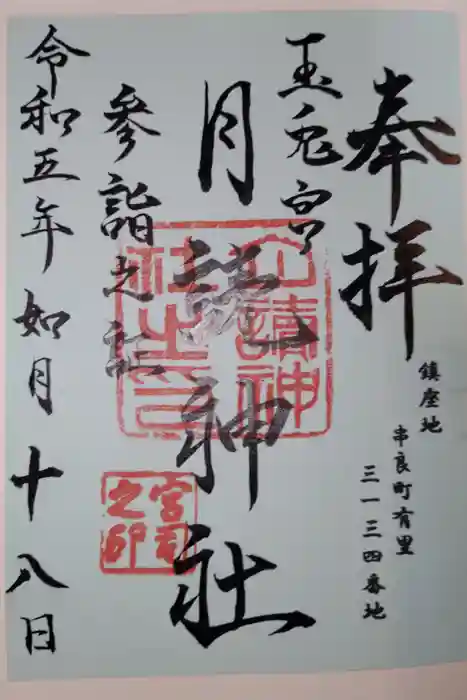 奉拝
鎮座地
串良町有里
三一三四番地
玉兎
月読神社
参詣之記
令和五年如月十八日
月讀神社之印
宮司之印